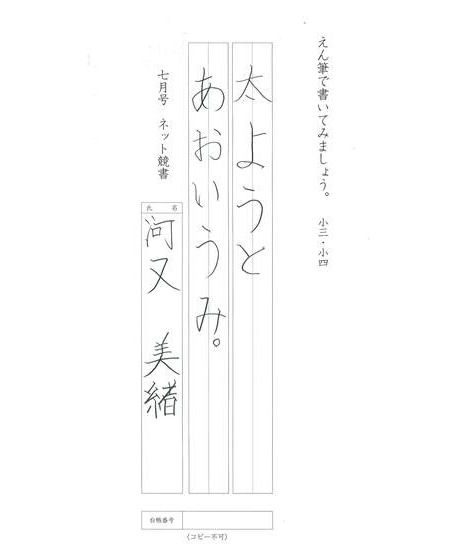 えん筆で書いてみましょう。　小三・小四
太ようと
あおいうみ。
七月号　ネット競書
氏名
河又　美緒
台帳番号
〈コピー不可〉